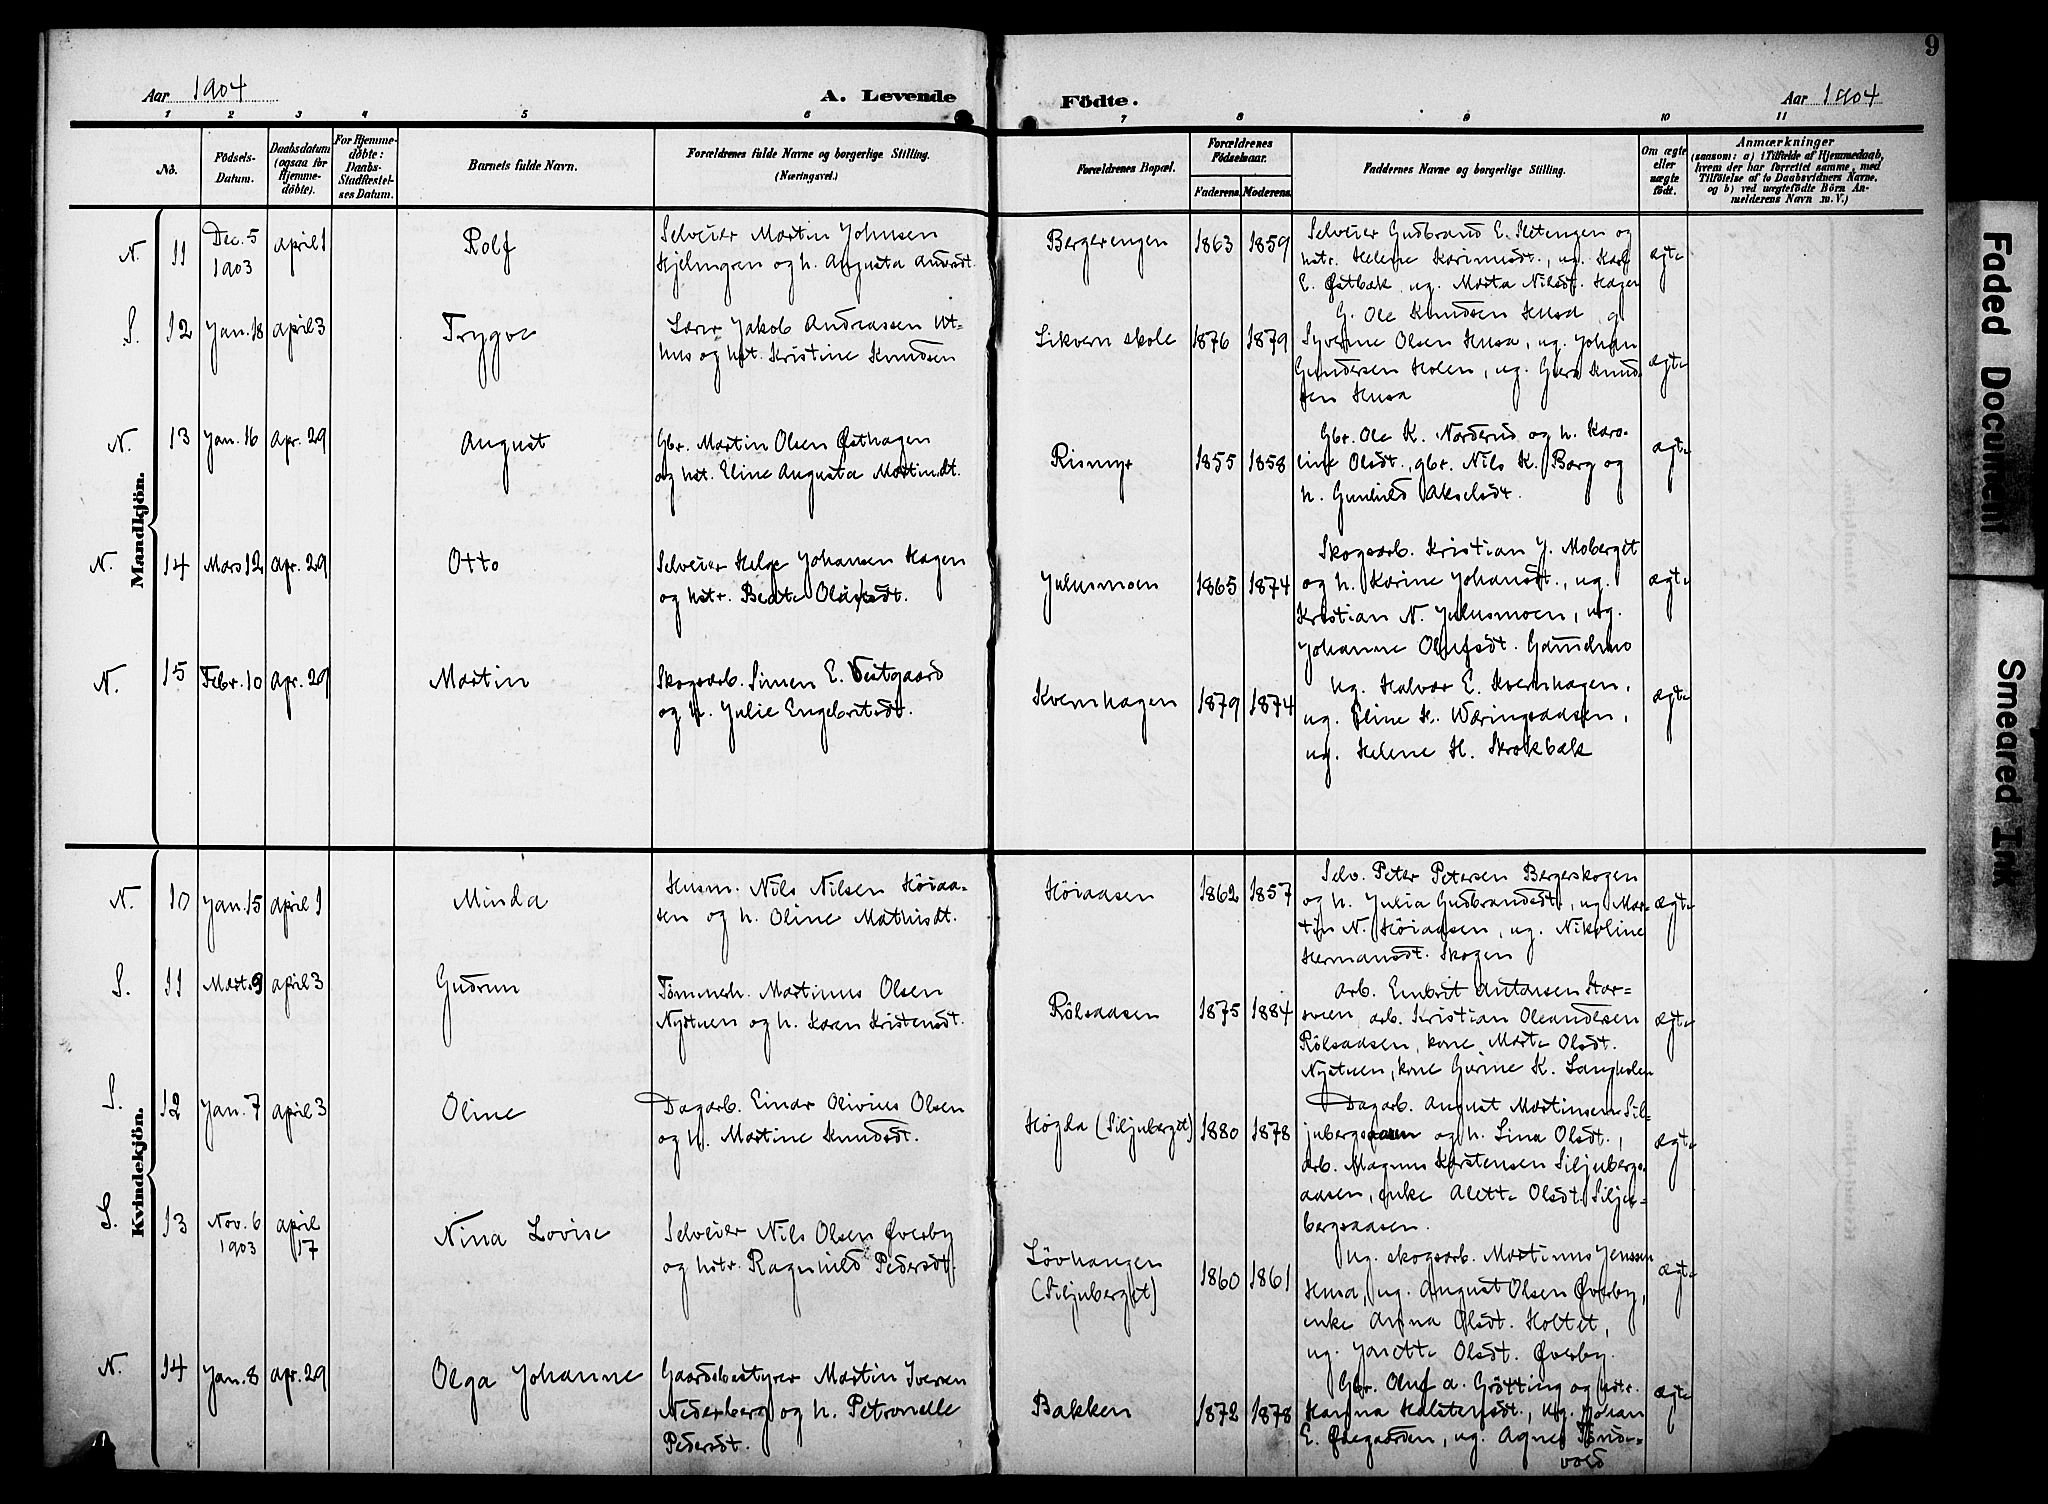 9
Aar 1904
A. Levende Födte.
Aar 1904
1 2 3 4 5 6 7 8 9 10 11
No.
Födsels-Datum.
Daabsdatum (ogsaa for Hjemme-döbte).
For Hjemme-döbte: Daabs-Stadfæstel-ses Datum.
Barnets fulde Navn.
Forældrenes fulde Navne og borgerlige Stilling.
(Næringsvei.)
Forældrenes Bopæl.
Forældrenes Födselsaar.
Faderens. Moderens.
Faddernes Navne og borgerlige Stilling.
Om ægte eller uægte födt.
Anmærkninger
(saasom: a) i Tilfælde af Hjemmedaab, hvem der har forrettet samme, med Tilföielse af to Daabsvidners Navne, og b) ved uægtefödte Börn An-melderens Navn m. V.)
Mandkjön.
N. 11 Dec. 5 1903 april 1 Rolf
Selveier Martin Johnsen
Hjelmgren og h. Augusta Andrsdt.
Bergerengen 1863 1859
Selveier Gudbrand E. Sletengen og
hstr. Helene Karimusdt., ug. Karl
E. Østbæk, ug. Marta Nilsdt. Hagen
ægte
S. 12 Jan. 18 april 3 Trygve
Lærer Jakob Andreassen Ut-
hus og hst. Kristine Knudsen
Likvern skole 1876 1879
G. Ole Knudsen Husa, g.
Syverine Olsen Husa, ug. Johan
Gundersen Holen, ug. Gura Knud-
sen Husa
ægte
N. 13 Jan. 16 apr. 29 August
Gbr. Martin Olsen Østhagen
og hst. Eline Augusta Martinsdt.
Rismyr 1855 1858
Gbr. Ole K. Norderud og h. Karo-
line Olsdt., gbr. Nils K. Berg og
h. Gunhild Akselsdt.
ægte
N. 14 Mars 12 apr. 29 Otto
Selveier Helge Johansen Hagen
og hstr. Beate
Julusmoen 1865 1874
Skogsarb. Kristian J. Moberget
og h. Karine Johansdt., ug.
Kristian N. Julusmoen, ug.
Johanne Olufsdt. Gaardmo
ægte
N. 15 Febr. 10 apr. 29 Martin
Skogsarb. Simen E. Vestgaard
og h. Julie Engebretsdt.
Kvernhagen 1879 1874
Ug. Halvor E. Kvernhagen,
ug. Eline H. Væringsaasen,
ug. Helene H. Skrokbæk
ægte
Kvindekjön.
N. 10 Jan. 15 april 1 Minda
Husm. Nils Nilsen Høiaa-
sen og h. Oline Mathisdt.
Høiaasen 1862 1857
Selv. Peter Petersen Bergerskogen
og h. Julia Gudbrandsdt., ug. Mar-
tin N. Høiaasen, ug. Nikoline
Hermansdt. Skogen
ægte
S. 11 Mart. 9 april 3 Gudrun
Tømmerh. Martinus Olsen
Nystuen og h. Karen Kristensdt.
Rølsaasen 1875 1884
arb. Embrit Antonsen Stor-
sveen, arb. Kristian Oleandersen
Rølsaasen, kone Marte Olsdt.
Nystuen, kone Gurine K. Langholen
ægte
S. 12 Jan. 7 april 3 Oline
Dagarb. Einar Olivius Olsen
og h. Martine Knudsdt.
Høgda (Siljuberget) 1880 1878
Dagarb. August Martinsen Sil-
jubergsaasen og h. Lina Olsdt.,
arb. Magnus Karstensen Siljubergs-
aasen, enke Alette Olsdt. Silju-
bergsaasen.
ægte
S. 13 Nov. 6 1903 april 17 Nina Lovise
Selveier Nils Olsen Øverby
og hstr. Ragnhild Pedersdt.
Løvhaugen
(Siljuberget) 1860 1861
Ug. skogsarb. Martinus Jenssen
Husa, ug. August Olsen Øverby,
enke Anna Olsdt. Holtet,
ug. Janette Olsdt. Øverby.
ægte
N. 14 Jan. 8 apr. 29 Olga Johanne
Gaardsbestyrer Martin Iversen
Nederberg og h. Petronelle
Pedersdt.
Bakken 1872 1878
Gbr. Oluf A. Grøtting og hstr.
Hanna Halstensdt., ug. Johan
E. Øvegaarden, ug. Agnes Sønde-
vold
ægte
Faded Document
Smeared Ink